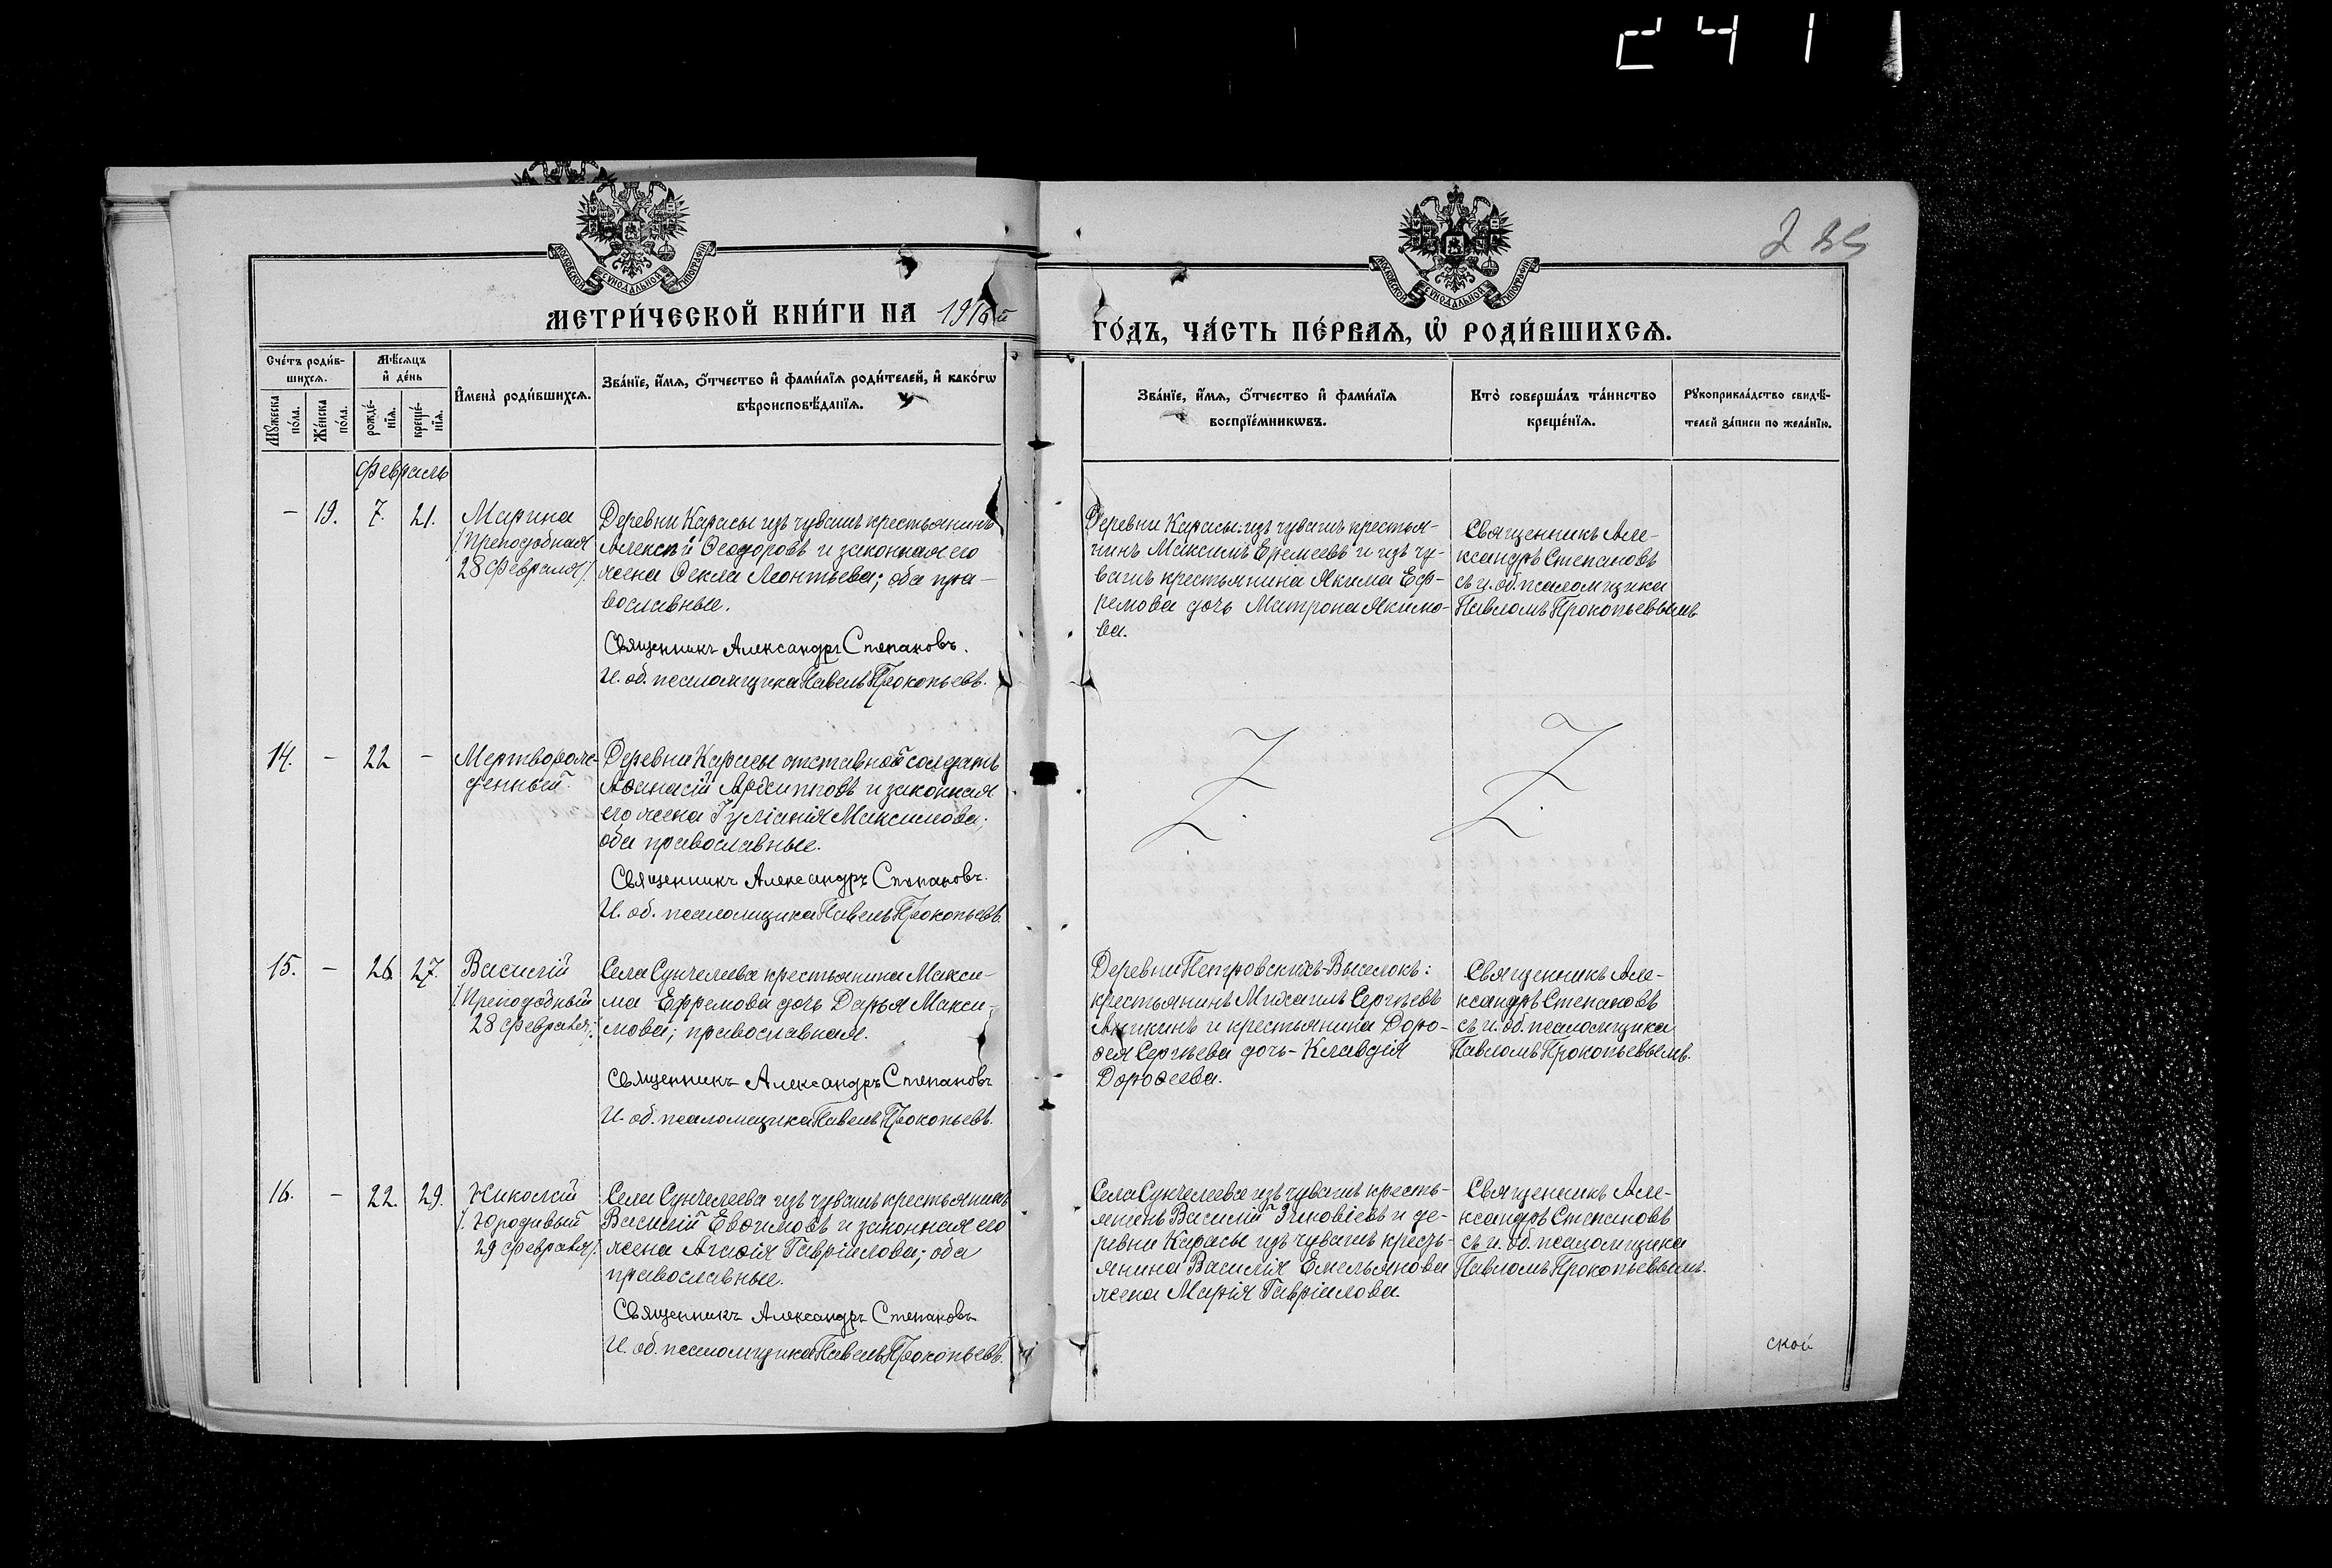 2411
МОСКОВСКОЙ СѴНОДАЛЬНОЙ ТИПОГРАФІИ
МОСКОВСКОЙ СѴНОДАЛЬНОЙ ТИПОГРАФІИ
МЕТРИ́ЧЕСКОЙ КНИ́ГИ НА 1916й
ГО́ДЪ, ЧА́СТЬ ПЕ́РВАЯ, Ѡ҆ РОДИ́ВШИХСЯ.
Сче́тъ роди́в-
шихся.
Мѣ́сяцъ
и҆ де́нь
Мꙋ́жеска
по́ла.
Же́нска
по́ла.
рожде́-
нїя.
креще́-
нїя.
И҆мена̀ роди́вшихся.
Зва́нїе, и҆́мя, ѻ҆́тчество и҆ фами́лїя роди́телей, и҆ како́гѡ
вѣроисповѣ́данїя.
Зва́нїе, и҆́мя, ѻ҆́тчество и҆ фами́лїя
воспрїе́мникѡвъ.
Кто̀ соверша́лъ та́инство
креще́нїя.
Рꙋкоприкла́дство свидѣ́-
телей за́писи по жела́нїю.
Февраль
– 19. 7. 21.
Марина
/Преподобная
28 Февраля/.
Деревни Карасы изъ чувашъ крестьянинъ
Алексѣй Ѳеодоровъ и законная его
жена Ѳекла Леонтьева; оба пра-
вославные.
Священникъ Александръ Степановъ.
И. об. псаломщика Павелъ Прокопьевъ.
Деревни Карасы: изъ чувашъ крестья-
нинъ Максимъ Еремеевъ и изъ чу-
вашъ крестьянина Якима Еф-
ремова дочь Матрона Якимо-
ва.
Священникъ Але-
ксандръ Степановъ
съ и. об. псаломщика
Павломъ Прокопьевымъ
14. – 22 –
Мертворож-
денный.
Деревни Карасы отставной солдатъ
Аѳанасій Архипповъ и законная
его жена Іуліанія Максимова;
оба православные.
Священникъ Александръ Степановъ.
И. об. псаломщика Павелъ Прокопьевъ.
15. – 26 27.
Василій
/Преподобный
28 Февраля/.
Села Сунчелеева крестьянина Макси-
ма Ефремова дочь Дарья Макси-
мова; православная.
Священникъ Александръ Степановъ
И. об. псаломщика Павелъ Прокопьевъ.
Деревни Петровскихъ-Выселокъ:
крестьянинъ Михаилъ Сергѣевъ
и крестьянина Доро-
ѳея Сергѣева дочь – Клавдія
Дороѳеева.
Священникъ Але-
ксандръ Степановъ
съ и. об. псаломщика
Павломъ Прокопьевымъ.
16. – 22. 29.
Николай
/. Юродивый
29 Февраля/.
Села Сунчелеева изъ чувашъ крестьянинъ
Василій Евѳимовъ и законная его
жена Агаѳія Гавріилова; оба
православные.
Священникъ Александръ Степановъ
И. об. псаломщика Павелъ Прокопьевъ.
Села Сунчелеева изъ чувашъ кресть-
янинъ Василій Зиновіевъ и де-
ревни Карасы изъ чувашъ кресть-
янина Василія Емельянова
жена Марія Гавріилова.
Священникъ Але-
ксандръ Степановъ
съ и. об. псаломщика
Павломъ Прокопьевымъ.
ской